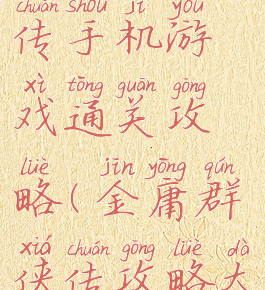 chuán shǒu jī yóu
传手机游
xì tōng guān gōng
戏通关攻
lüè jīn yōng qún
略(金庸群
xiá chuán gōng lüè dà
侠传攻略大